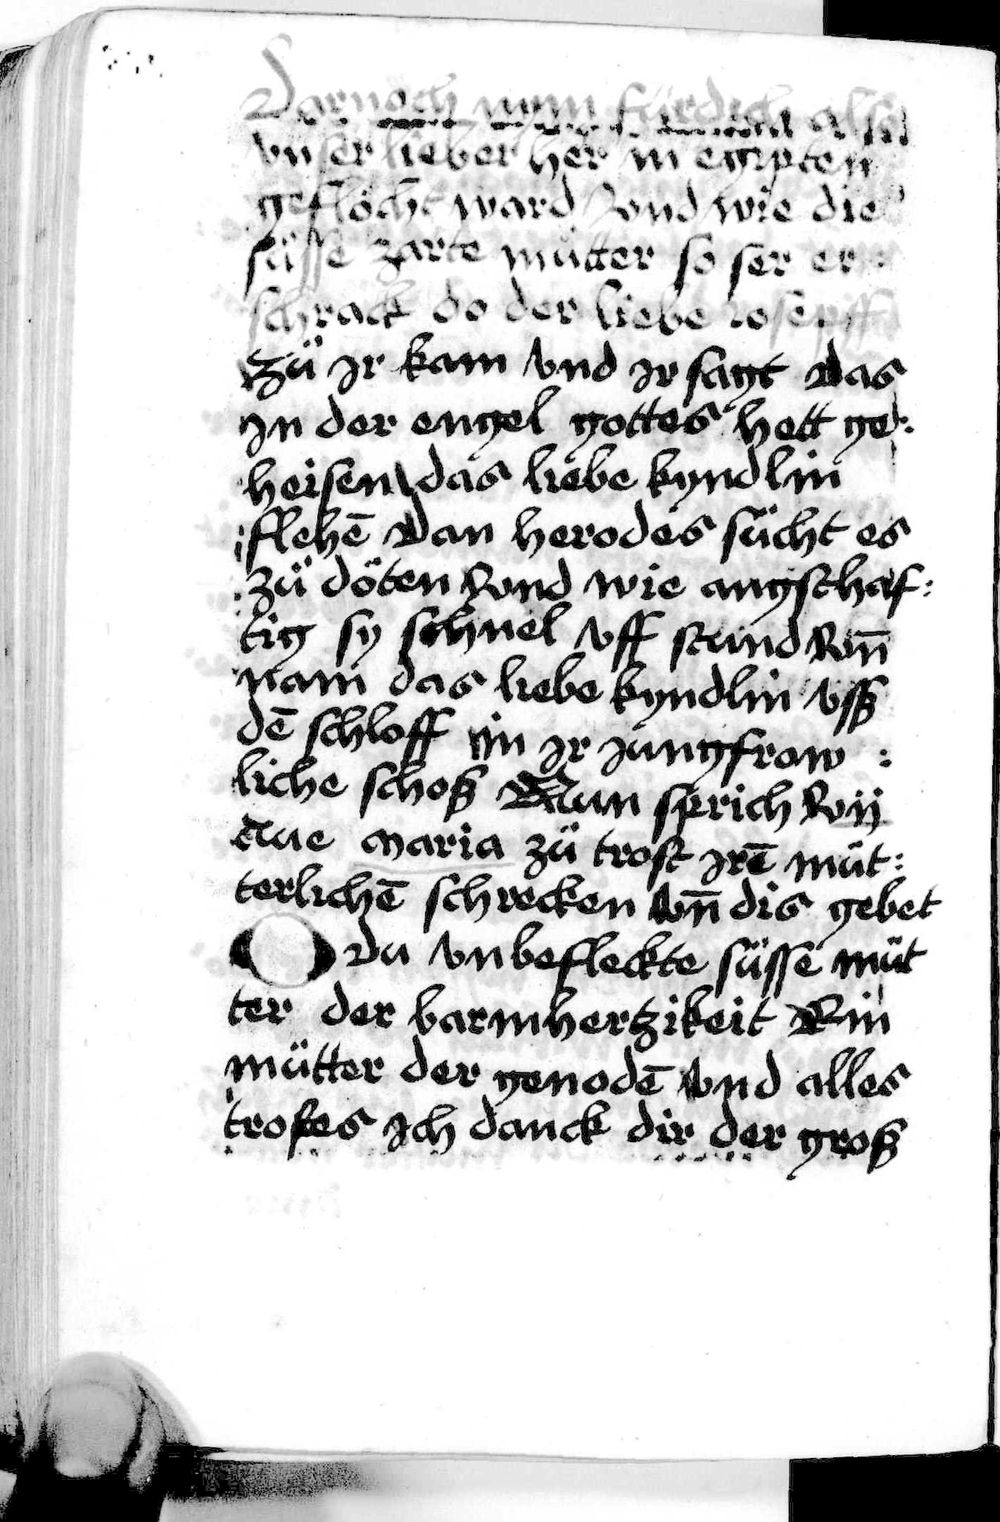 Darnoch nym fürdich als
vnser lieber her in egipten
geflöcht ward vnd wie die
süsse zarte mütter so ser er :
schrack do der liebe iosepff
zü ir kam vnd ir sagt das
in der engel gottes hett ge:
heisen das liebe kyndlin
flehē dan herodes sücht es
zü döten vnd wie angsthaf:
tig sy schnel vff stund vn̄
nam das liebe kyndlin vsß
dē schloff in ir iungfrow :
liche schoß Nun sprich vij
aue maria zü trost irē müt:
terlichē schrecken vn̄ dis gebet
O du vnbefleckte süsse müt
ter der barmhertzikeit Ein
mütter der genodē vnd alles
trostes ich danck dir der groß